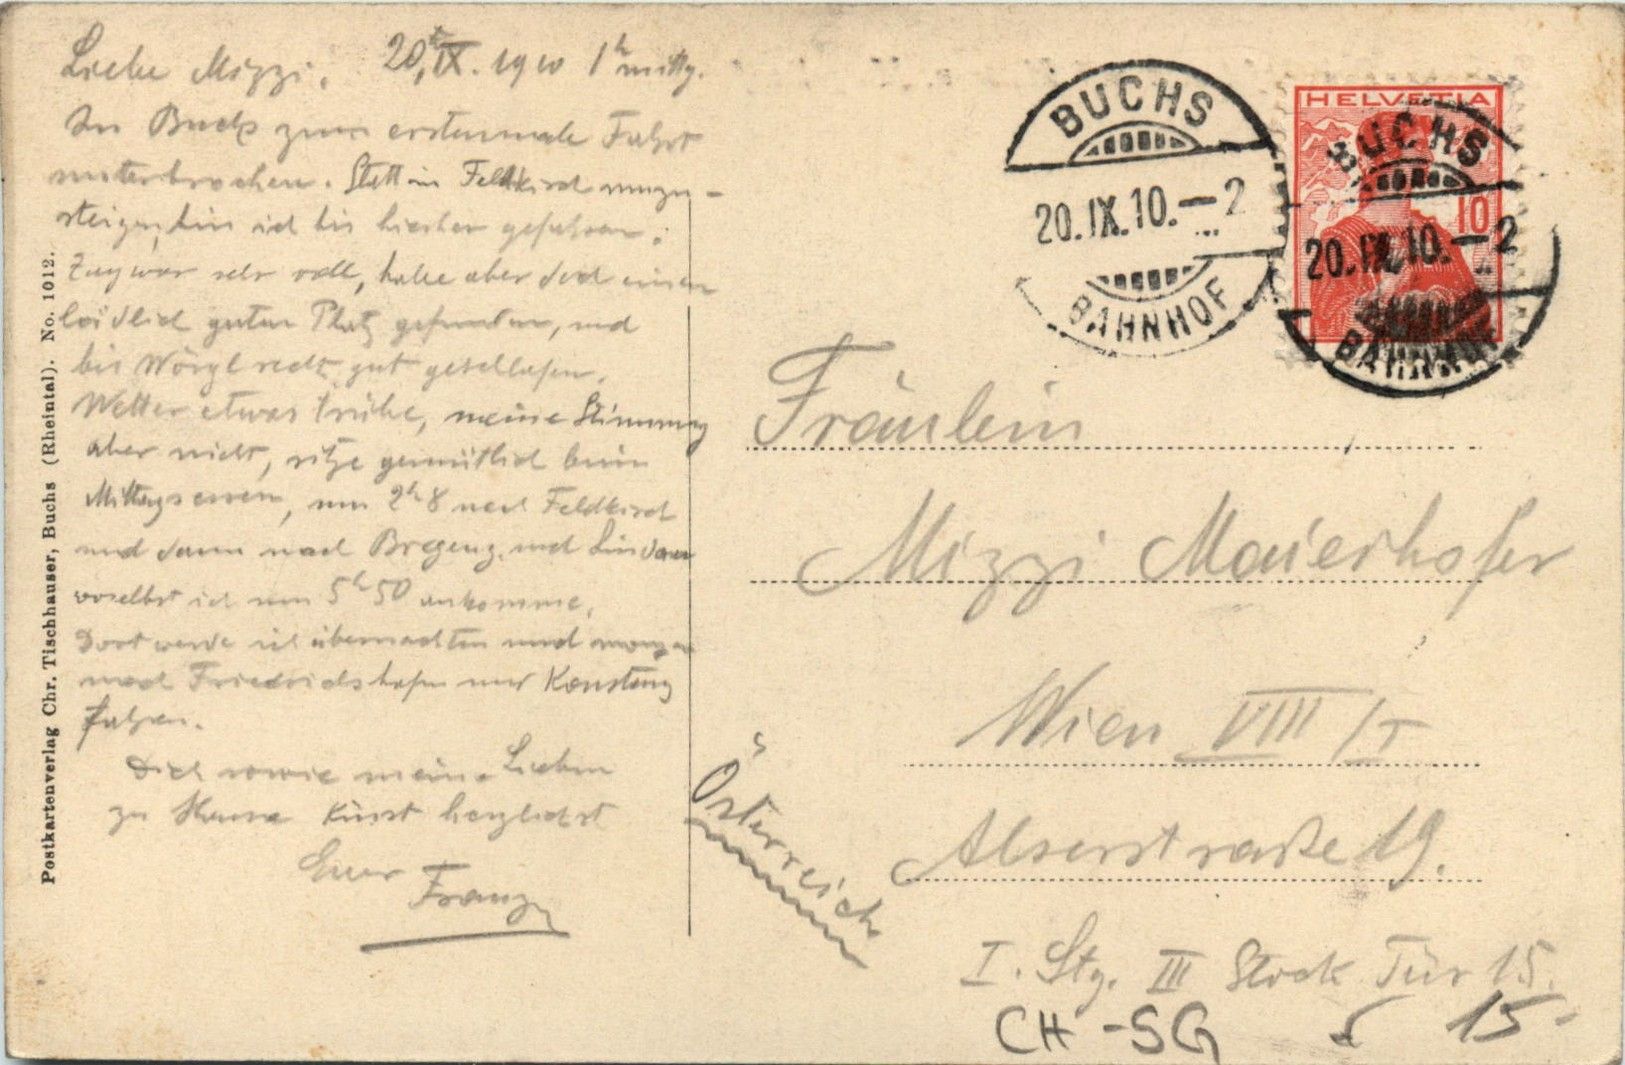 Liebe Mizzi, 20. IX. 1910 1h mittg.
In Buchs zum erstenmale Fahrt
unterbrochen. Statt in Feldkirch umzu-
steigen, bin ich bis hierher gefahren.
Zug war sehr voll, habe aber doch einen
loidlich guten Platz gefunden, und
bis Wörgl recht gut geschlafen.
Wetter etwas trübe, meine Stimmung
aber nicht, sitze gemütlich beim
Mittagsessen, um 2h 8 nach Feldkirch
und dann nach Bregenz und Lindau
woselbst ich um 5h 50 ankomme.
Dort werde ich übernachten und morgen
nach Friedrichshafen und Konstanz
fahren.
Dich sowie meine Lieben
zu Hause küsst herzlichst
Euer
Franz
Postkartenverlag Chr. Tischhauser, Buchs (Rheintal). No. 1012.
BUCHS
20.IX.10.—2
BAHNHOF
HELVETIA
10
BUCHS
20.IX.10.—2
BAHNHOF
Fräulein
Mizzi Maierhofer
Wien VIII/I
Alserstraße 19.
I. Stg. III Stock Tür 15.
Österreich
CH-SG 15